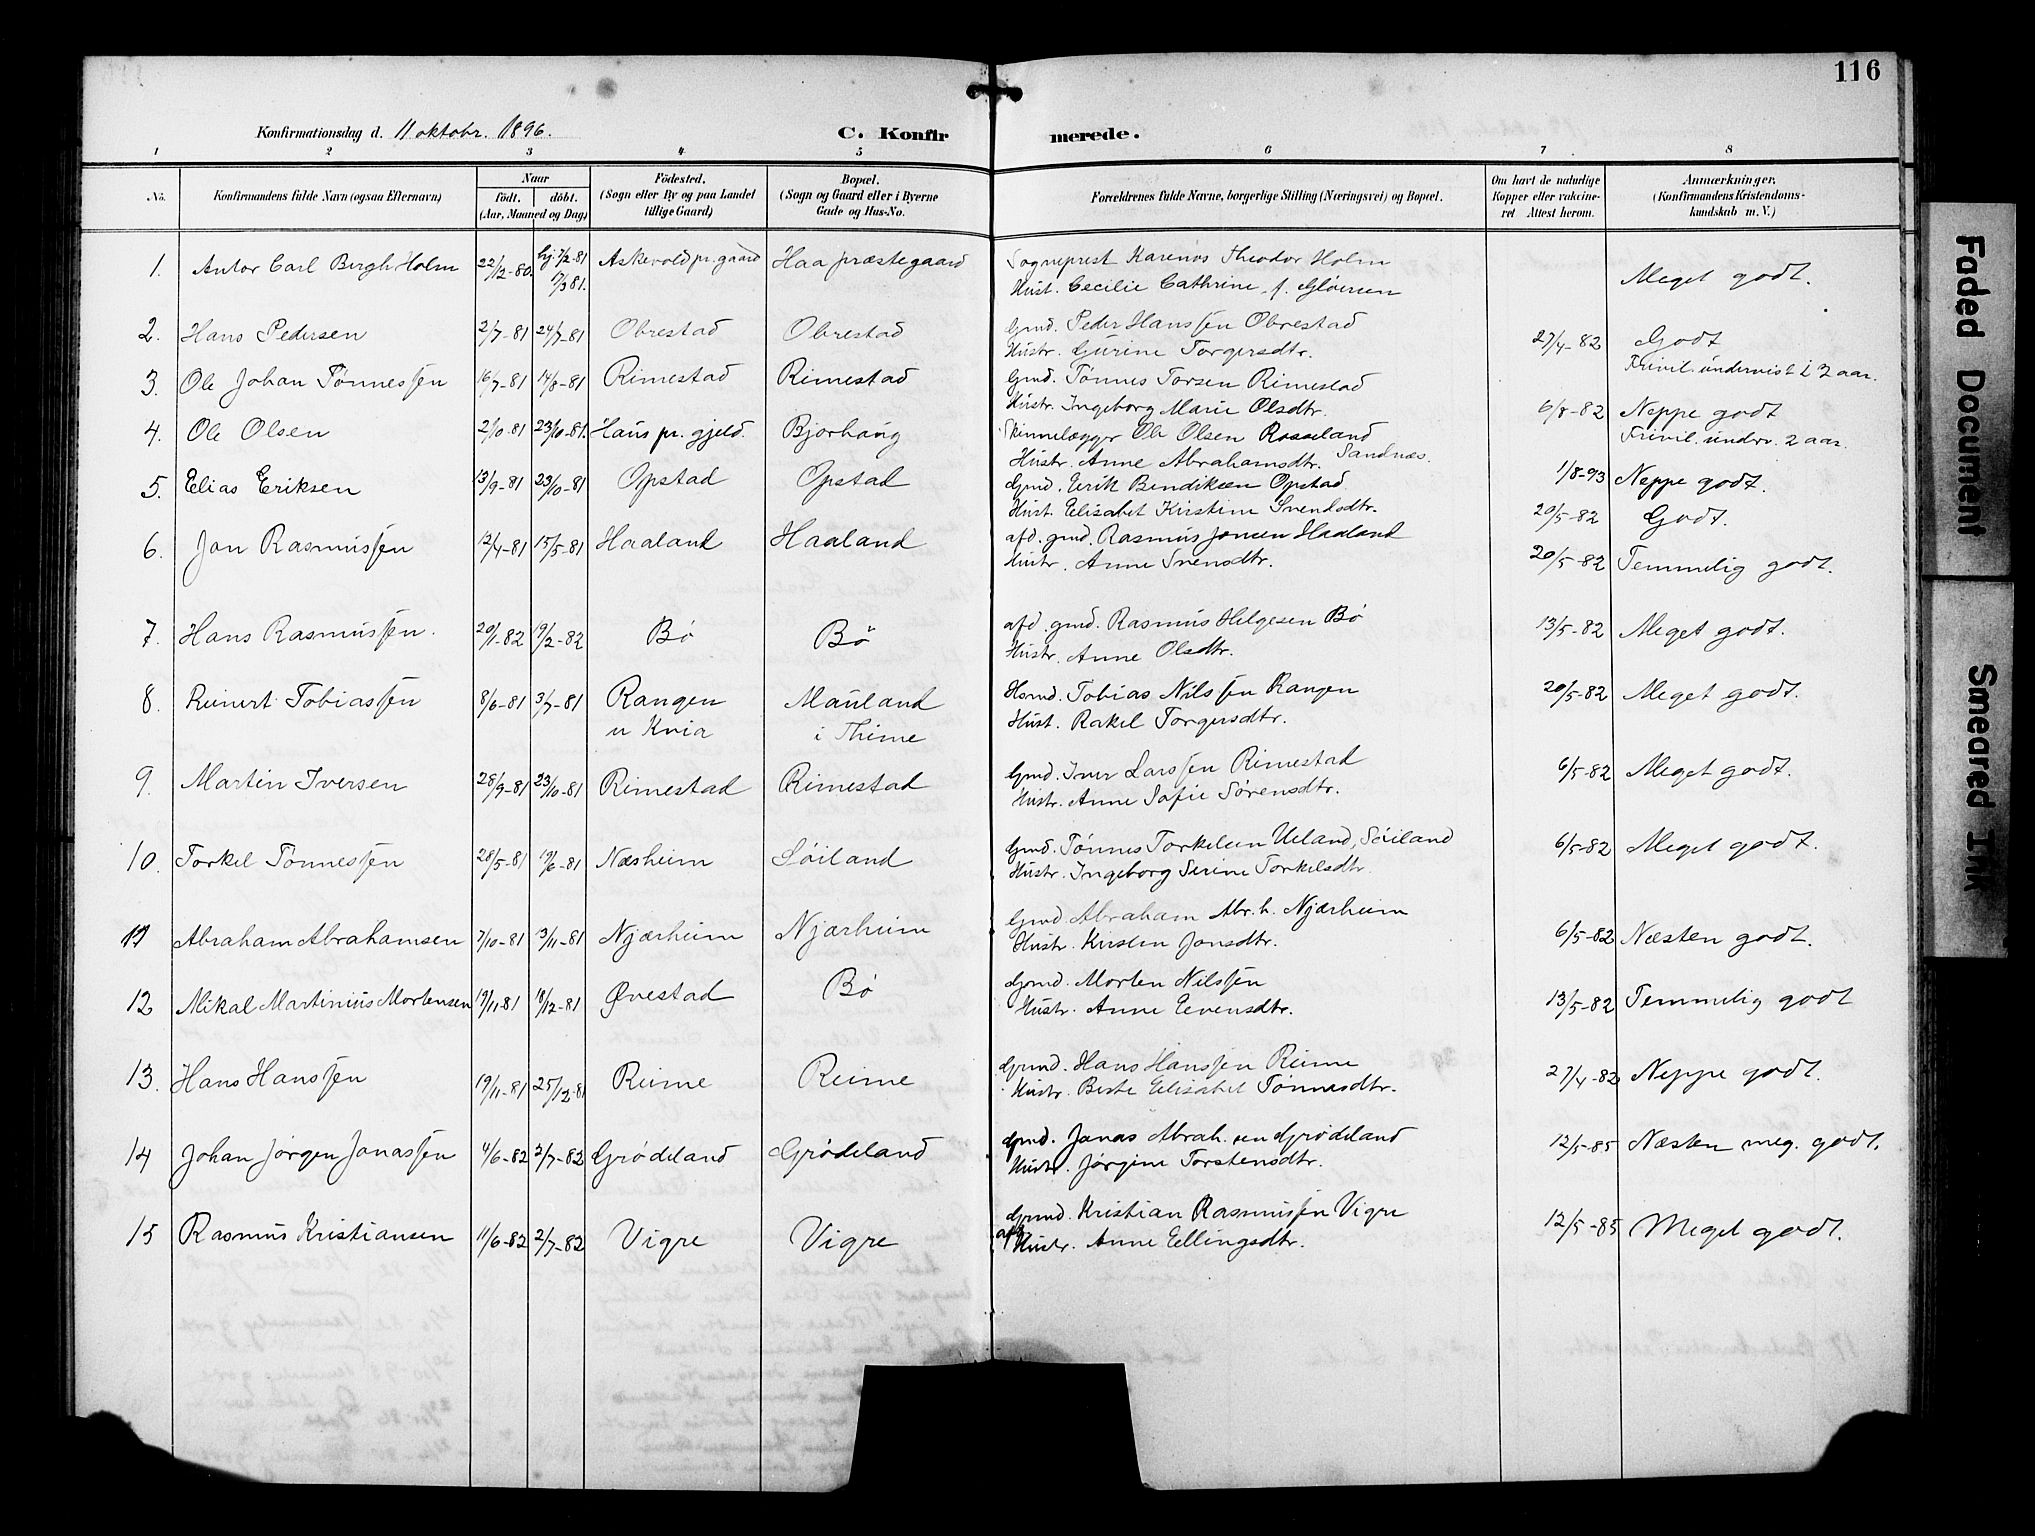 116
Konfirmationsdag d. 11 oktobr. 1896.
C. Konfirmerede.
1 2 3 4 5 6 7 8
No. Konfirmandens fulde Navn (ogsaa Efternavn) Naar födt. döbt. (Aar, Maaned og Dag) Födested. (Sogn eller By og paa Landet tillige Gaard) Bopæl. (Sogn og Gaard eller i Byerne Gade og Hus-No. Forældrenes fulde Navne, borgerlige Stilling (Næringsvei) og Bopæl. Om havt de naturlige Kopper eller vakcineret Attest herom. Anmærkninger. (Konfirmandens Kristendomskundskab m. V.)
1. Anton Carl Bergh Holm 22/12-80. hj. 7/2-81 17/3 81. Askevold pr. gaard Haa præstegaard Sogneprest Karenos Theodor Holm
Hust. Cecilie Cathrine f. Gløersen Meget godt.
2. Hans Pedersen 2/7-81 24/7-81 Obrestad Obrestad Gmd. Peder Hanssen Obrestad
Hustr. Gurine Torgersdtr. 27/4-82 Godt
Frivil. undervist i 2 aar.
3. Ole Johan Tönnessen 16/7-81 14/8-81 Rimestad Rimestad Gmd. Tønnes Torsen Rimestad
Hustr. Ingeborg Marie Olsdtr. 6/8-82 Neppe godt
Frivil. underv. 2 aar.
4. Ole Olsen 2/10 81 23/10-81. Haus pr. gjeld. Bjorhaug Minnelægger Ole Olsen Rosseland
Sandnæs.
Hustr. Anne Abrahamsdtr. 1/8-93 Neppe godt.
5. Elias Eriksen 13/9-81 23/10-81 Opstad Opstad Gmd. Eerik Bendiksen Opstad
Hust. Eelisabet Kirstine Svendsdtr. 20/5-82 Godt.
6. Jon Rasmussen 12/4-81 15/5-81 Haaland Haaland afd. gmd. Rasmus Jonsen Haaland
Hustr. Anne Svensdtr. 20/5-82 Temmelig godt.
7. Hans Rasmussen. 20/1-82 19/2-82 Bö Bö afd. gmd. Rasmus Helgesen Bö
Hustr. Anne Olsdtr. 13/5-82 Meget godt.
8. Reinert Tobiassen 8/6-81 3/7-81 Rangen
u Kvia Mauland
i Thime Hsmd. Tobias Nilssen Rangen
Hust. Rakel Torgersdtr. 20/5-82 Meget godt.
9. Martin Iversen 28/9-81 23/10-81 Rimestad Rimestad Gmd. Iver Larssen Rimestad
Hustr. Anne Sofie Sørensdtr. 6/5-82 Meget godt.
10. Torkel Tönnessen 28/5-81 19/6-81 Næsheim Söiland Gmd. Tønnes Torkelsen Ueland, Söiland
Hustr. Ingeborg Serine Torkelsdtr. 6/5-82 Meget godt.
11 Abraham Abrahamsen 7/10-81 13/11-81 Njærheim Njærheim Gmd Abraham Abr.h. Njærheim
Hustr. Kirsten Jonsdtr. 6/5-82 Næsten godt.
12 Mikal Martinius Mortensen 19/11-81 18/12-81 Øvestad Bö Gmd. Morten Nilssen
Hustr. Anne Eevensdtr. 13/5-82 Temmelig godt
13. Hans Hanssen 19/11-81 25/12-81 Reime Reime Gmd. Hans Hanssen Reime
Hustr. Berte Eelisabet Tönnesdtr. 27/4-82 Neppe godt.
14 Johan Jørgen Jonassen 4/6-82 2/7-82 Grödeland Grödeland Gmd. Jonas Abrah.sen Grödeland
Hustr. Jørgine Torstensdtr. 12/5-85 Næsten meg. godt.
15 Rasmus Kristiansen 11/6-82 2/7-82 Vigre Vigre Gmd. Kristian Rasmussen Vigre
afd. Hustr. Anne Eellingsdtr. 12/5-85 Meget godt.
Faded Document
Smeared Ink